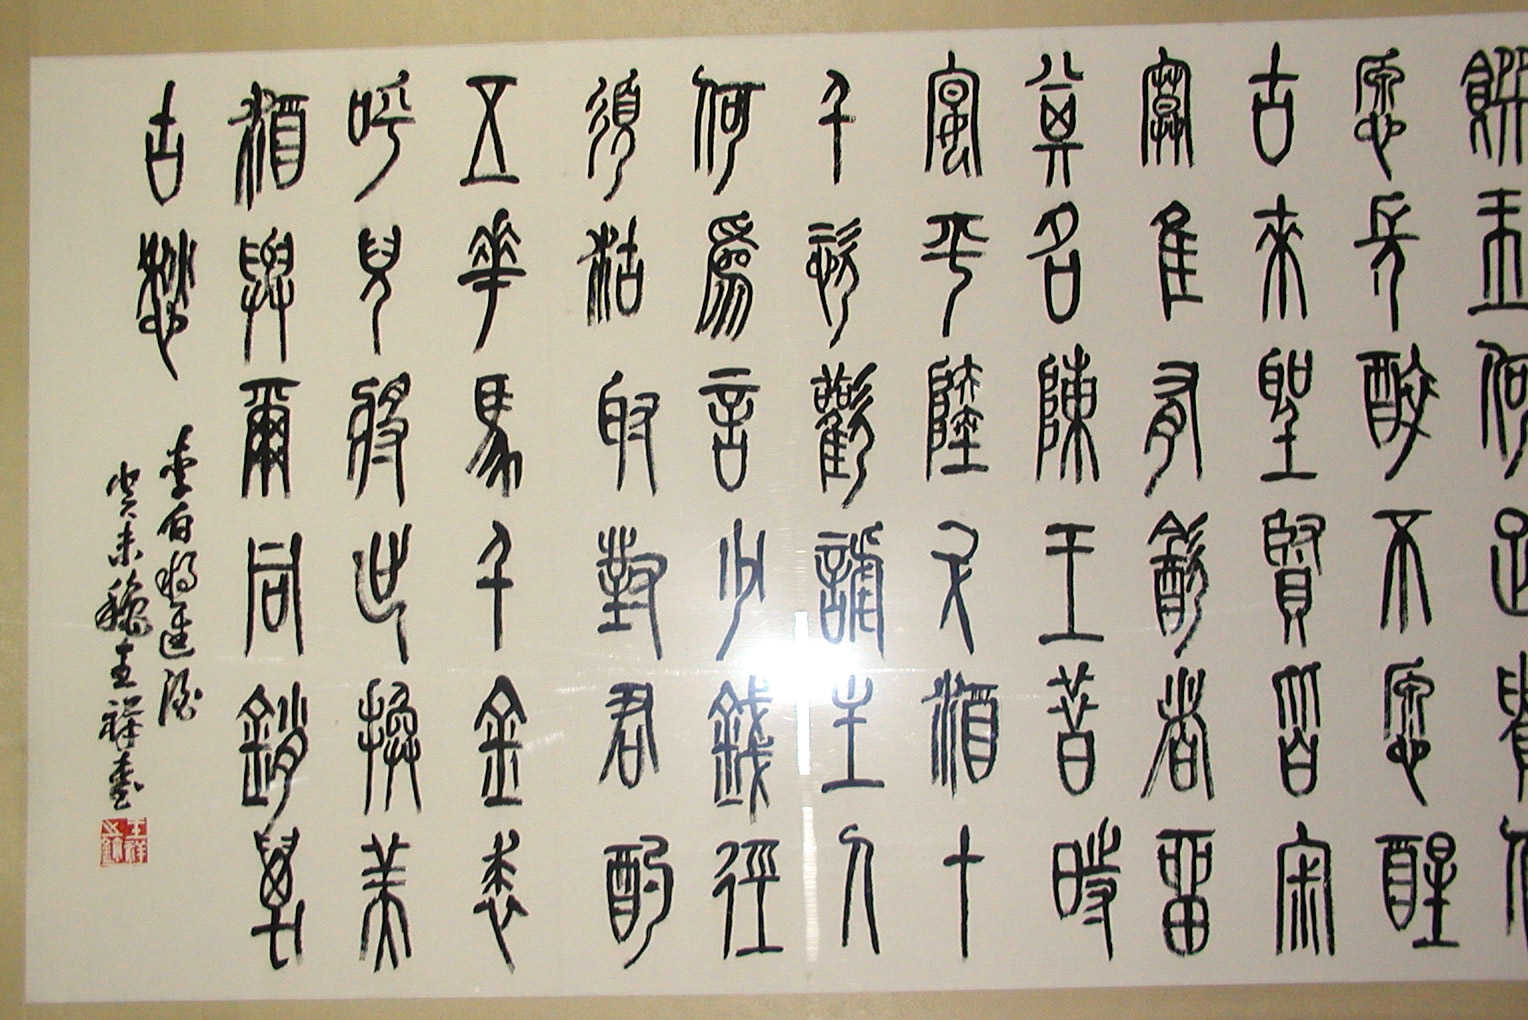 饌玉何足貴但
願長醉不願醒
古來聖賢皆寂
寞惟有飲者留
其名陳王昔時
宴平陸斗酒十
千恣歡謔主人
何為言少錢徑
須沽取對君酌
五華馬千金裘
呼兒將出換美
酒與爾同銷萬
古愁
李白將進酒
癸未秋王祥書
王祥之鉨